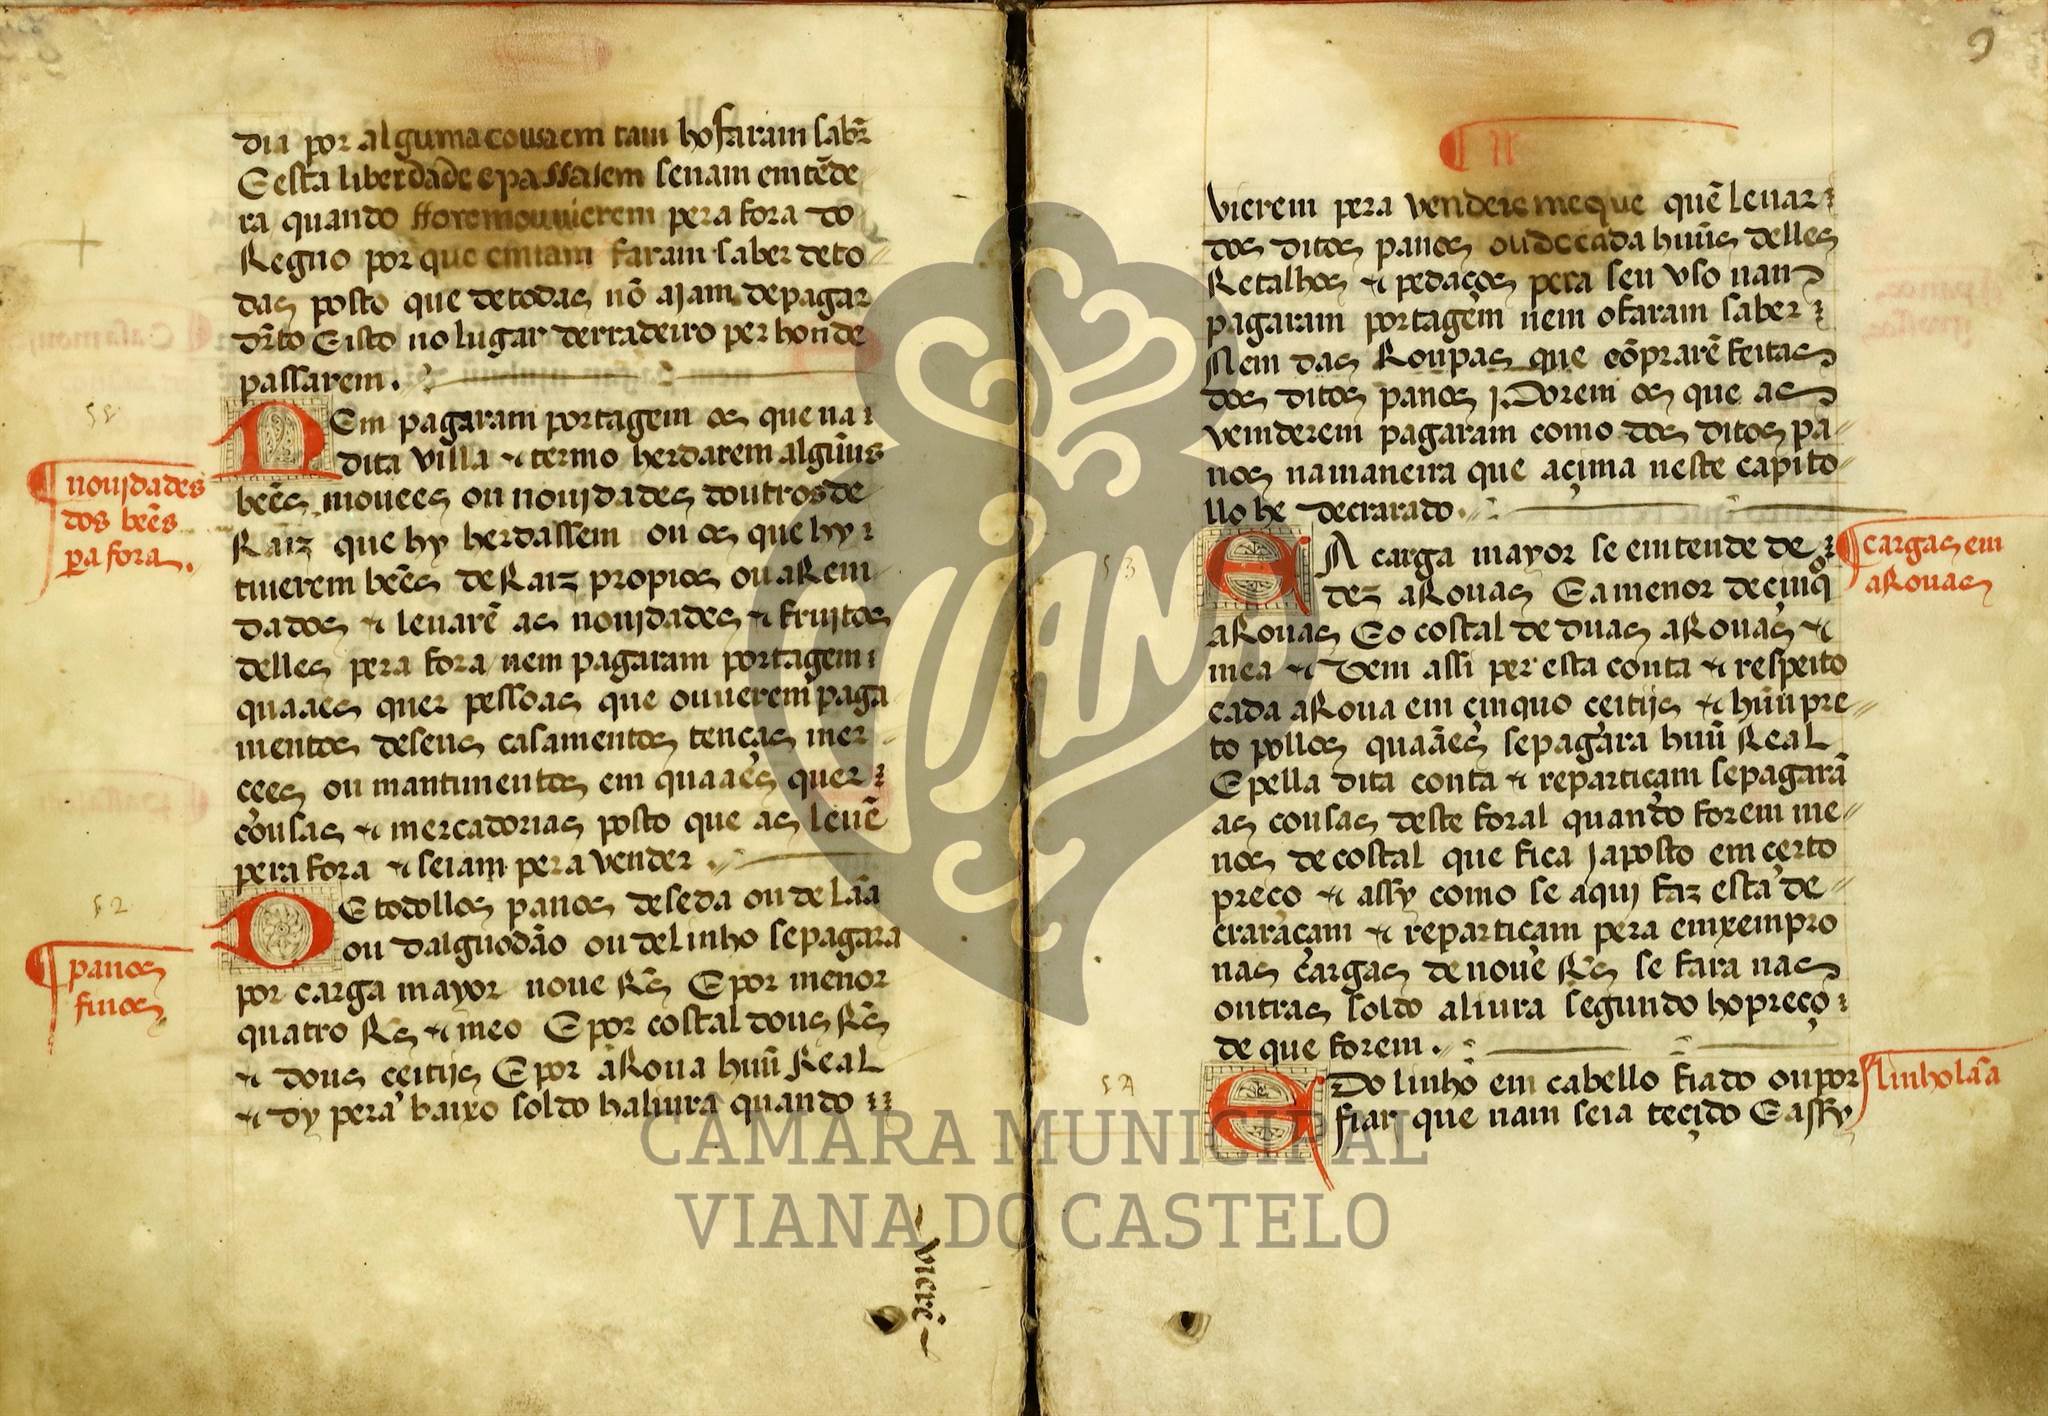 dia por alguma cousa em tam ho faram sabr̃
E esta liberdade e passajem se nam emtẽde
ra quando fforem ou vierem pera fora do
Regno por que emtam faram saber de to
das posto que de todas nõ ajam de pagar
dr̃to E isto no lugar derradeiro per honde
passarem .
NEm pagaram portagem os que na
dita villa ⁊ termo herdarem algũus
beẽs mouees ou nouidades doutros de
Raiz que hy herdassem ou os que hy
tiuerem beẽs de Raiz propios ou aRem
dados ⁊ leuarẽ as nouidades ⁊ fruitos
delles pera fora nem pagaram portagem
quaaes quer pessoas que ouuerem paga
mentos de seus casamentos tenças mer
cees ou mantimentos em quaaes quer
cousas ⁊ mercadorias posto que as leuẽ
pera fora ⁊ seiam pera vender .
DE todollos panos de seda ou de lãa
ou dalguodão ou de linho se pagara
por carga mayor noue Rs̃ E por menor
quatro Rs̃ ⁊ meo E por costal dous Rs̃
⁊ dous ceitijs E por aRoua huũ Real
⁊ dy pera baixo soldo ha liura quando
vierẽ
nouidades
dos beẽs
pa fora .
panos
finos
52
9
vierem pera vender
 que quẽ leuar
dos ditos panos ou de cada huũs delles
Retalhos ⁊ pedaços pera seu vso nan
pagaram portagem nem o faram saber
Nem das Roupas que cõprarẽ feitas
dos ditos panos j. Porem os que as
venderem pagaram como dos ditos pa-
nos na maneira que açima neste capito-
llo he decrarado .
EA carga mayor se emtende de
dez aRouas E a menor de cinq̊
aRouas E o costal de duas aRouas ⁊
mea ⁊ Vem assi per esta conta ⁊ respeito
cada aRoua em cinquo ceitijs ⁊ huũ pre-
to pollos quaães se pagara huũ Real
E pella dita conta ⁊ reparticam se pagarã
as cousas deste foral quando forem me-
nos de costal que fica ja posto em certo
preço ⁊ assy como se aqui faz esta de-
craraçam ⁊ repartiçam pera emxempro
nas cargas de noue Rs̃ se fara nas
outras soldo a liura segundo ho preço
de que forem .
EDo linho em cabello fiado ou por
fiar que nam seia teçido E assy
cargas em
aRouas
linho lãa
53
54
VIANA
CÂMARA MUNICIPAL
VIANA DO CASTELO